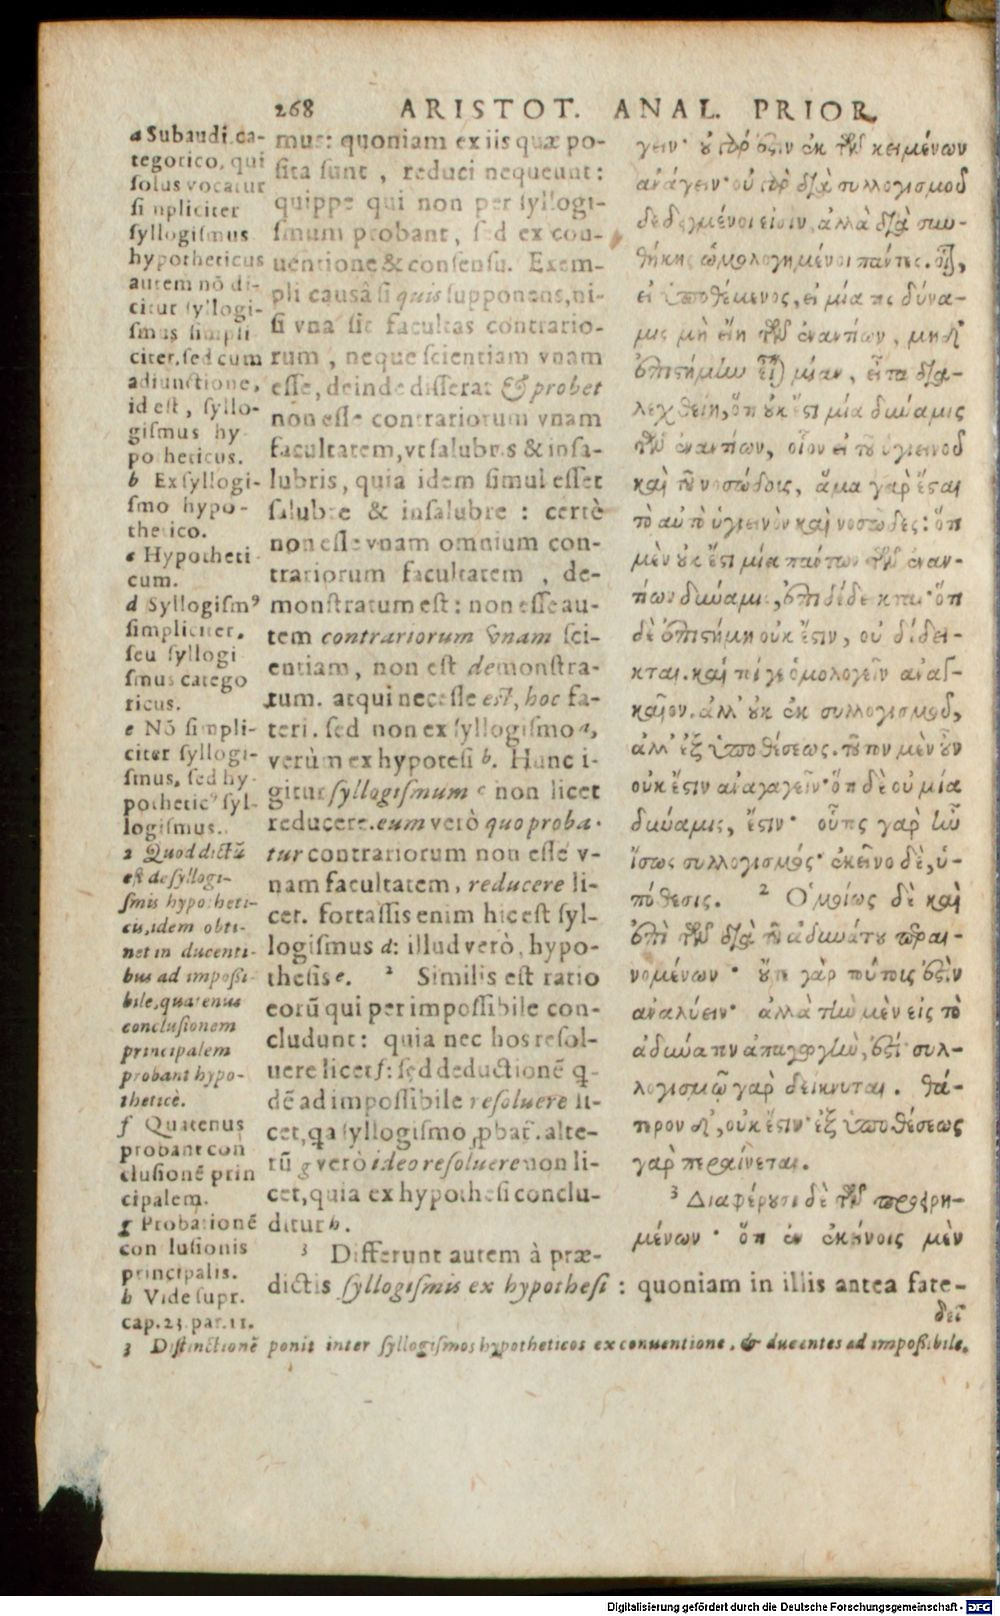 268 ARISTOT. ANAL. PRIOR.
a Subaudi ca-
tegorico, qui
solus vocatur
simpliciter
syllogismus
hypotheticus
autem nō di-
citur syllogi-
smus simpli
citer, sed cum
adiunctione,
id est, syllo-
gismus hy
potheticus.
b Ex syllogi-
smo hypo-
thetico.
c Hypotheti
cum.
d Syllogismꝰ
simpliciter,
seu syllogi
smus catego
ricus.
e Nō simpli-
citer syllogi-
smus, sed hy-
potheticꝰ syl-
logismus.
2 Quod dictū
est de syllogi-
smis hypotheti-
cis, idem obti-
net in ducenti-
bus ad impossi-
bile, quatenus
conclusionem
principalem
probant hypo-
theticè.
f Quatenus
probant con
clusionē prin
cipalem.
g Probationē
conclusionis
principalis.
h Vide supr.
cap. 23. par. 11.
mus: quoniam ex iis quæ po-
sita sunt, reduci nequeunt:
quippe qui non per syllogi-
smum probant, sed ex con-
uentione & consensu. Exem-
pli causâ si quis supponens, ni-
si vna sit facultas contrario-
rum, neque scientiam vnam
esse, deinde disserat & probet
non esse contrariorum vnam
facultatem, vt salubris & insa-
lubris, quia idem simul esset
salubre & insalubre: certè
non esse vnam omnium con-
trariorum facultatem, de-
monstratum est: non esse au-
tem contrariorum vnam sci-
entiam, non est demonstra-
tum. atqui necesse est, hoc fa-
teri. sed non ex syllogismo a,
verùm ex hypotesi b. Hunc i-
gitur syllogismum c non licet
reducere. eum verò quo proba-
tur contrariorum non esse v-
nam facultatem, reducere li-
cet. fortassis enim hic est syl-
logismus d: illud verò, hypo-
thesis e. 2 Similis est ratio
eorū qui per impossibile con-
cludunt: quia nec hos resol-
uere licet f: sed deductionē q-
dē ad impossibile resoluere li-
cet, qa syllogismo ꝓbat̃. alte-
rū g verò ideo resoluere non li-
cet, quia ex hypothesi conclu-
ditur h.
3 Differunt autem à præ-
dictis syllogismis ex hypothesi: quoniam in illis antea fate-
γειν· οὐ γὰρ ἔστιν ἐκ τῶν κειμένων
ἀνάγειν· οὐ γὰρ διὰ συλλογισμοῦ
δεδειγμένοι εἰσὶν, ἀλλὰ διὰ συν-
θήκης ὡμολογημένοι πάντες. οἷον,
εἰ ὑποθέμενος, εἰ μία τις δύνα-
μις μὴ εἴη τῶν ἐναντίων, μηδ'
ἐπιστήμην εἶναι μίαν, εἶτα δια-
λεχθείη, ὅτι οὐκ ἔστι μία δύναμις
τῶν ἐναντίων, οἷον εἰ τοῦ ὑγιεινοῦ
καὶ τοῦ νοσώδοις, ἅμα γὰρ ἔσται
τὸ αὐτὸ ὑγιεινὸν καὶ νοσῶδες: ὅτι
μὲν οὐκ ἔστι μία πάντων τῶν ἐναν-
τίων δύναμις, ἐπιδέδεικται· ὅτι
δὲ ἐπιστήμη οὐκ ἔστιν, οὐ δέδει-
κται. καί τοί γε ὁμολογεῖν ἀναγ-
καῖον. ἀλλ' οὐκ ἐκ συλλογισμοῦ,
ἀλλ' ἐξ ὑποθέσεως. τοῦτον μὲν οὖν
οὐκ ἔστιν ἀναγαγεῖν· ὅτι δὲ οὐ μία
δύναμις, ἔστιν· οὗτος γὰρ ἦν
ἴσως συλλογισμός· ἐκεῖνο δὲ, ὑ-
πόθεσις. 2 Ὁμοίως δὲ καὶ
ἐπὶ τῶν διὰ τοῦ ἀδυνάτου περαι-
νομένων· οὔτε γὰρ τούτοις ἔστιν
ἀναλύειν· ἀλλὰ τὴν μὲν εἰς τὸ
ἀδύνατον ἀπαγωγὴν, ἔστι· συλ-
λογισμῷ γὰρ δείκνυται. θά-
τερον δ', οὐκ ἔστιν· ἐξ ὑποθέσεως
γὰρ περαίνεται.
3 Διαφέρουσι δὲ τῶν προειρη-
μένων· ὅτι ἐν ἐκείνοις μὲν
δεῖ
3 Distinctionē ponit inter syllogismos hypotheticos ex conuentione, & ducentes ad impossibile.
Digitalisierung gefördert durch die Deutsche Forschungsgemeinschaft - DFG